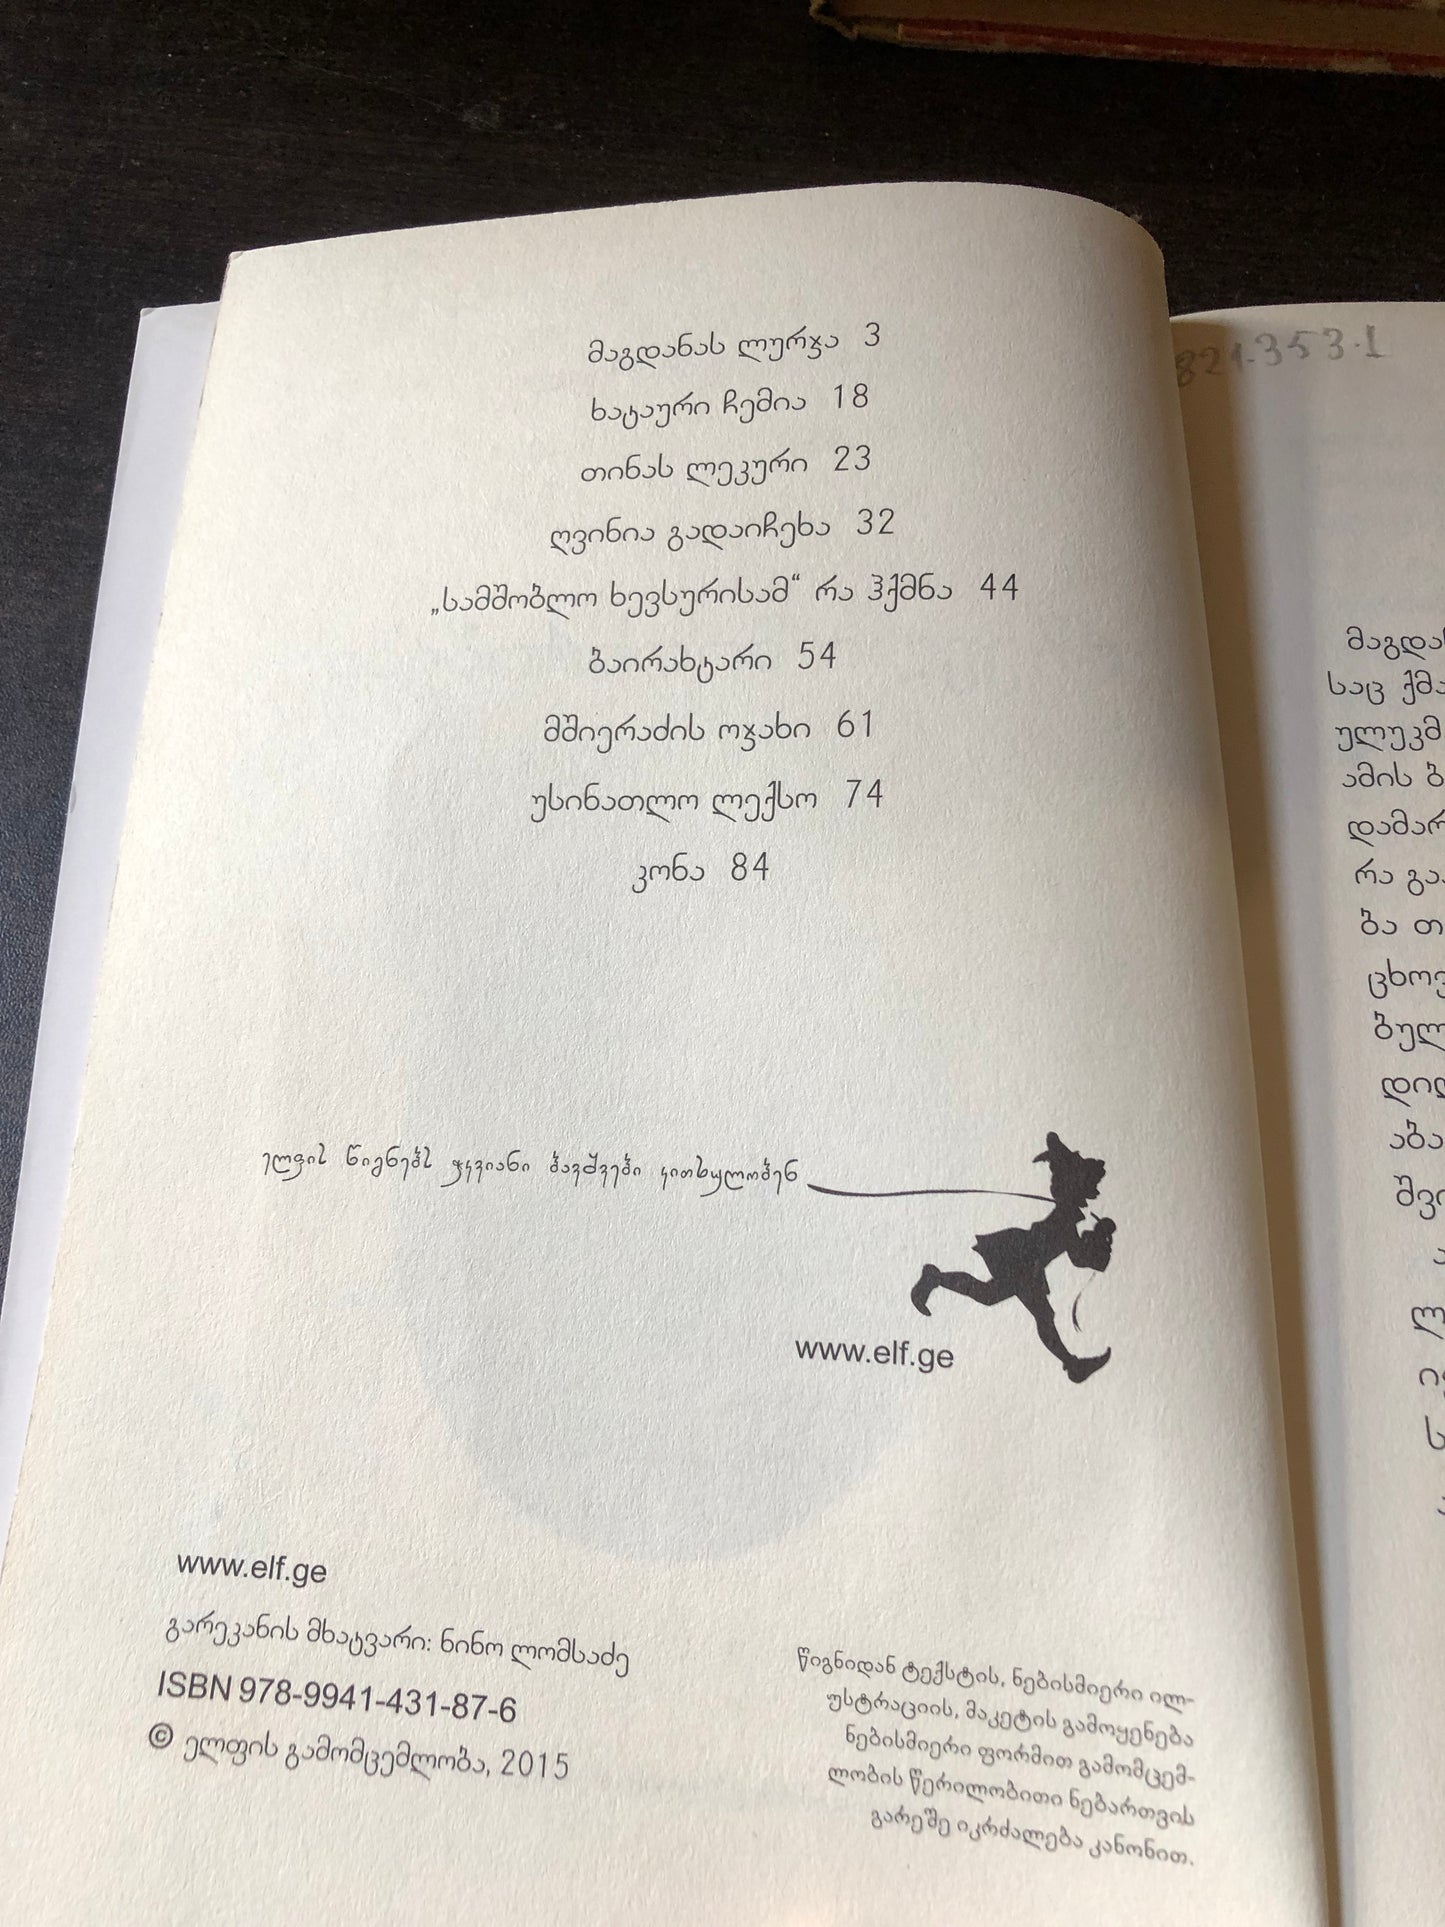 მაგდანას ლურჯა 3
ხატაური ჩემია 18
თინას ლეკური 23
ღვინია გადაიჩეხა 32
„სამშობლო ხევსურისამ“ რა ჰქმნა 44
ბაირახტარი 54
მშიერაძის ოჯახი 61
უსინათლო ლექსო 74
კონა 84
ელფის წიგნებს ჭკვიანი ბავშვები კითხულობენ
www.elf.ge
www.elf.ge
გარეკანის მხატვარი: ნინო ლომსაძე
ISBN 978-9941-431-87-6
© ელფის გამომცემლობა, 2015
წიგნიდან ტექსტის, ნებისმიერი ილ-
უსტრაციის, მაკეტის გამოყენება
ნებისმიერი ფორმით გამომცემ-
ლობის წერილობითი ნებართვის
გარეშე იკრძალება კანონით.
821.353.1
საც
რა
ბა